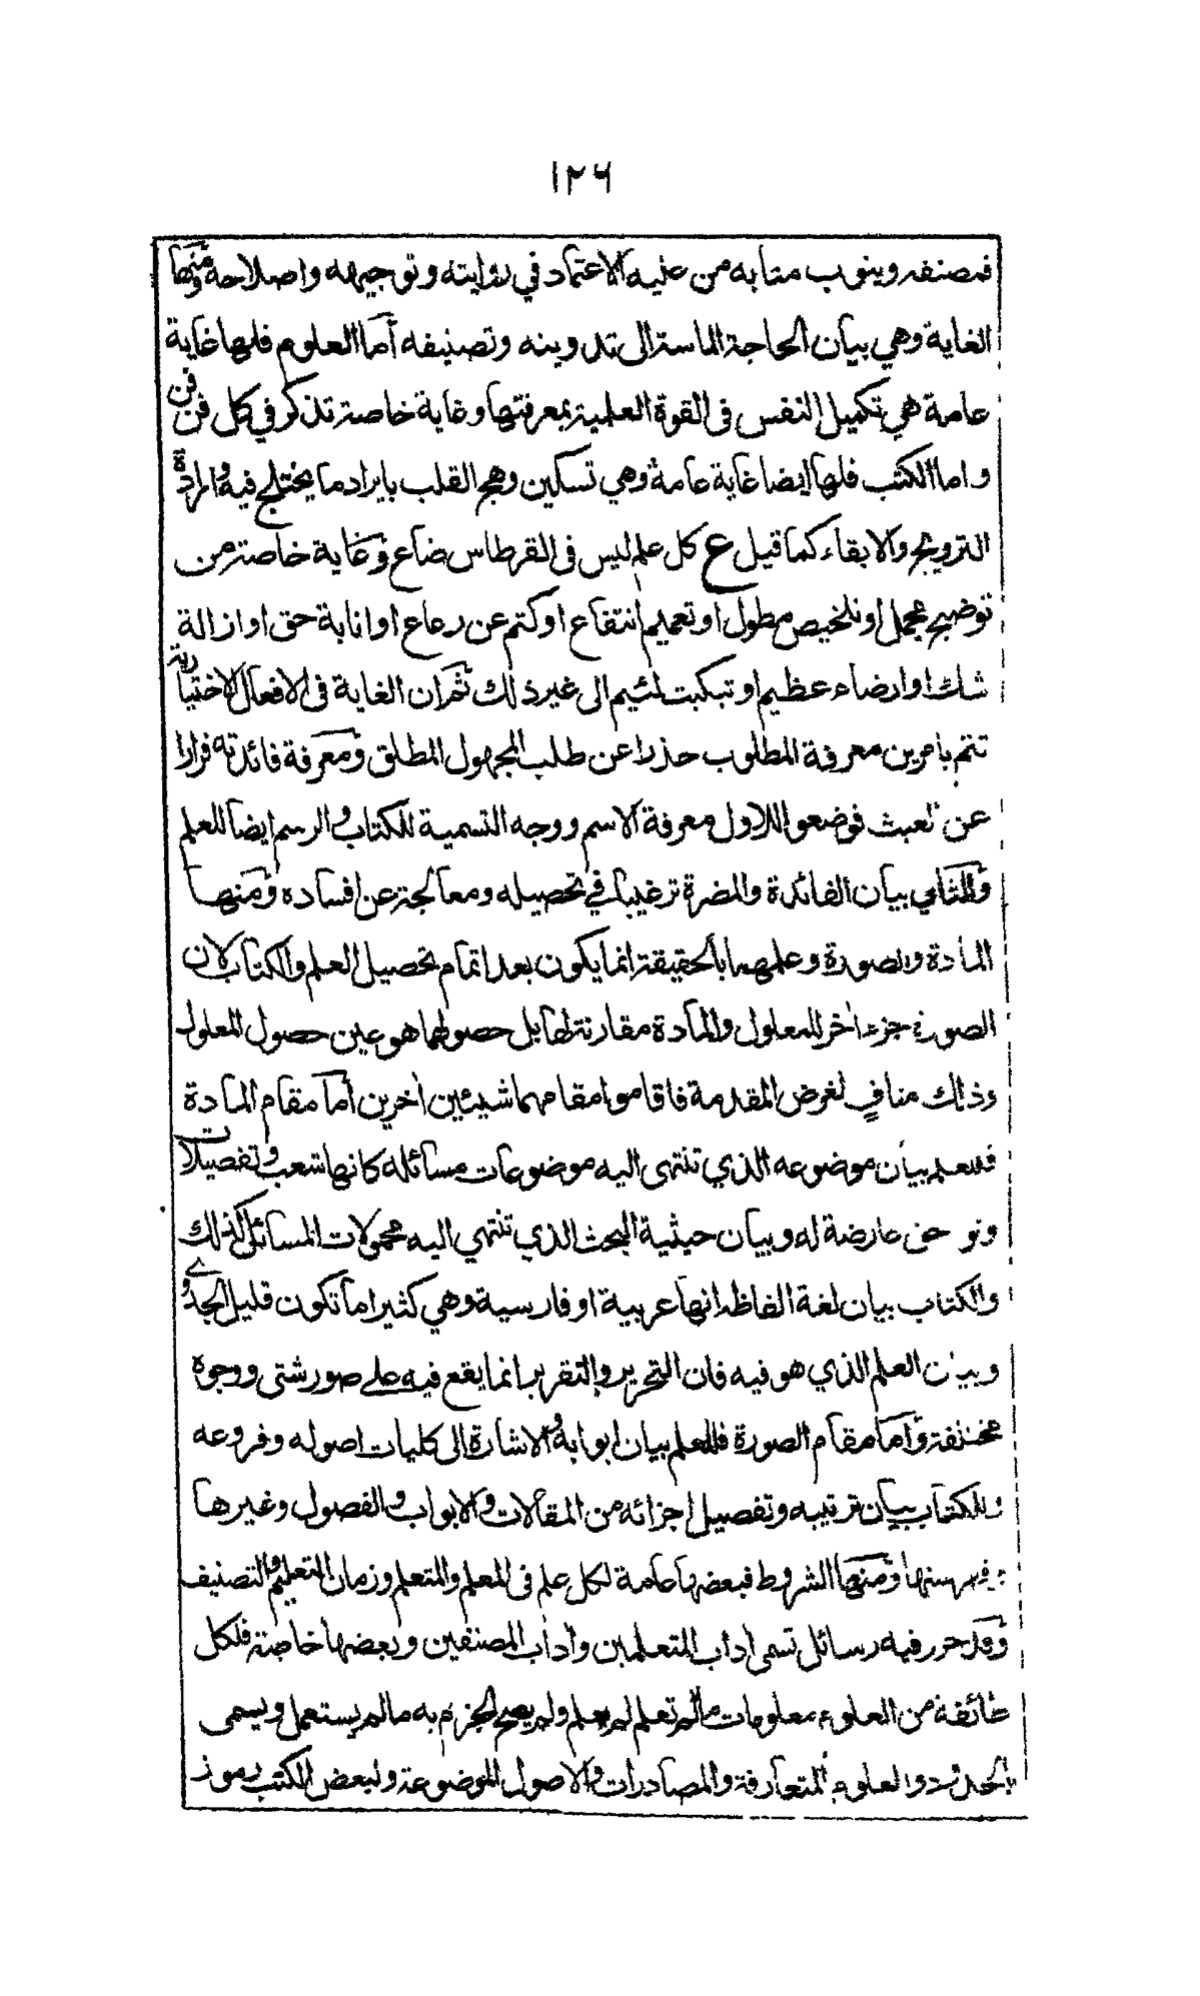 ١٢٦
فمصنفه وينوب منابه من عليه الاعتماد في روايته وتوجيهه واصلاحه ومنها
الغاية وهي بيان الحاجة الماسة الى تدوينه وتصنيفه أما العلوم فلها غاية
عامة هي تكميل النفس فى القوة العلمية بمعرفتها وغاية خاصة تذكر في كل فن فن
واما الكتب فلها ايضا غاية عامة وهي تسكين وهج القلب بايراد ما يختلج فيه وارادة
الترويج والابقاء كما قيل ع كل علم ليس فى القرطاس ضاع وغاية خاصة من
توضيح مجمل او تلخيص مطول او تعميم انتفاع او كتم عن رعاع او انابة حق او ازالة
شك او ارضاء عظيم او تبكيت لئيم الى غير ذلك ثم ان الغاية فى الافعال الاختيارية
تتم بامرين معرفة المطلوب حذرا عن طلب المجهول المطلق ومعرفة فائدته فرارا
عن العبث فوضعوا للاول معرفة الاسم ووجه التسمية للكتاب والرسم ايضا للعلم
وللثاني بيان الفائدة والمضرة ترغيبا في تحصيله ومعالجة عن افساده ومنها
المادة والصورة وعلمهما بالحقيقة انما يكون بعد اتمام تحصيل العلم والكتاب لان
الصورة جزء اخر للمعلول والمادة مقارنة لها بل حصولهما هو عين حصول المعلول
وذلك منافٍ لغرض المقدمة فاقاموا مقامهما شيئين اخرين أما مقام المادة
فللعلم بيان موضوعه الذي تنتهى اليه موضوعات مسائله كانها شعب وتفصيلات
ونواحى عارضة له وبيان حيثية البحث الذي تنتهي اليه محمولات المسائل كذلك
وللكتاب بيان لغة الفاظه انها عربية او فارسية وهي كثيرا ما تكون قليل الجدوے
وبيان العلم الذي هو فيه فان التحرير والتقرير انما يقع فيه على صور شتى ووجوه
مختلفة وأما مقام الصورة فللعلم بيان ابوابه والاشارة الى كليات اصوله وفروعه
وللكتاب بيان ترتيبه وتفصيل اجزائه من المقالات والابواب والفصول وغيرها
وفهرستها ومنها الشروط فبعضها عامة لكل علم فى المعلم والمتعلم وزمان التعليم والتصنيف
وقد حرر فيه رسائل تسمى اداب المتعلمين واداب المصنفين وبعضها خاصة فلكل
طائفة من العلوم معلومات مالم تعلم لم يعلم ولم يصح الجزم به مالم يستعمل ويسمى
بالحدود والعلوم المتعارفة والمصادرات والاصول الموضوعة ولبعض الكتب رموز